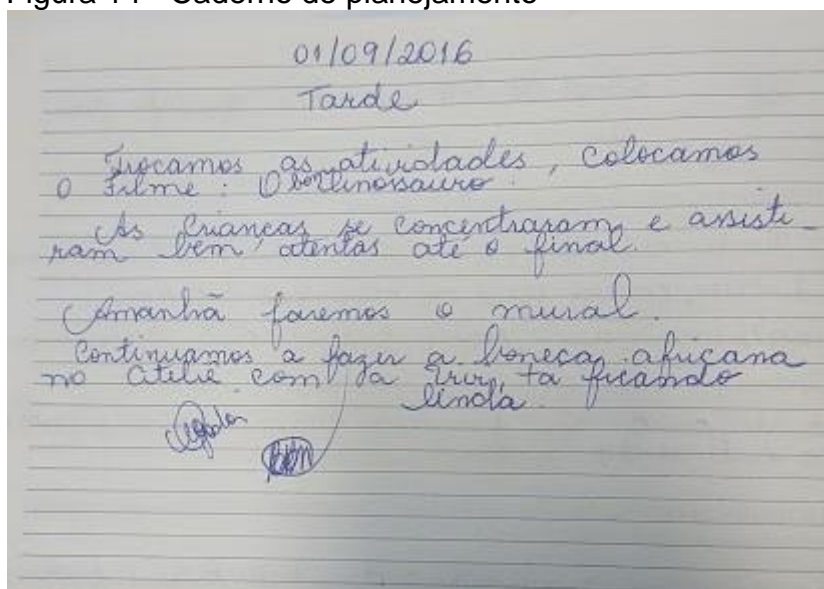 Figura 14 - Caderno de planejamento
01/09/2016
Tarde
Trocamos as atividades, colocamos
o Filme: O bom dinossauro.
As crianças se concentraram e assisti-
ram bem atentas até o final.
Amanhã faremos o mural.
Continuamos a fazer a boneca africana
no ateliê com a ta ficando
linda.